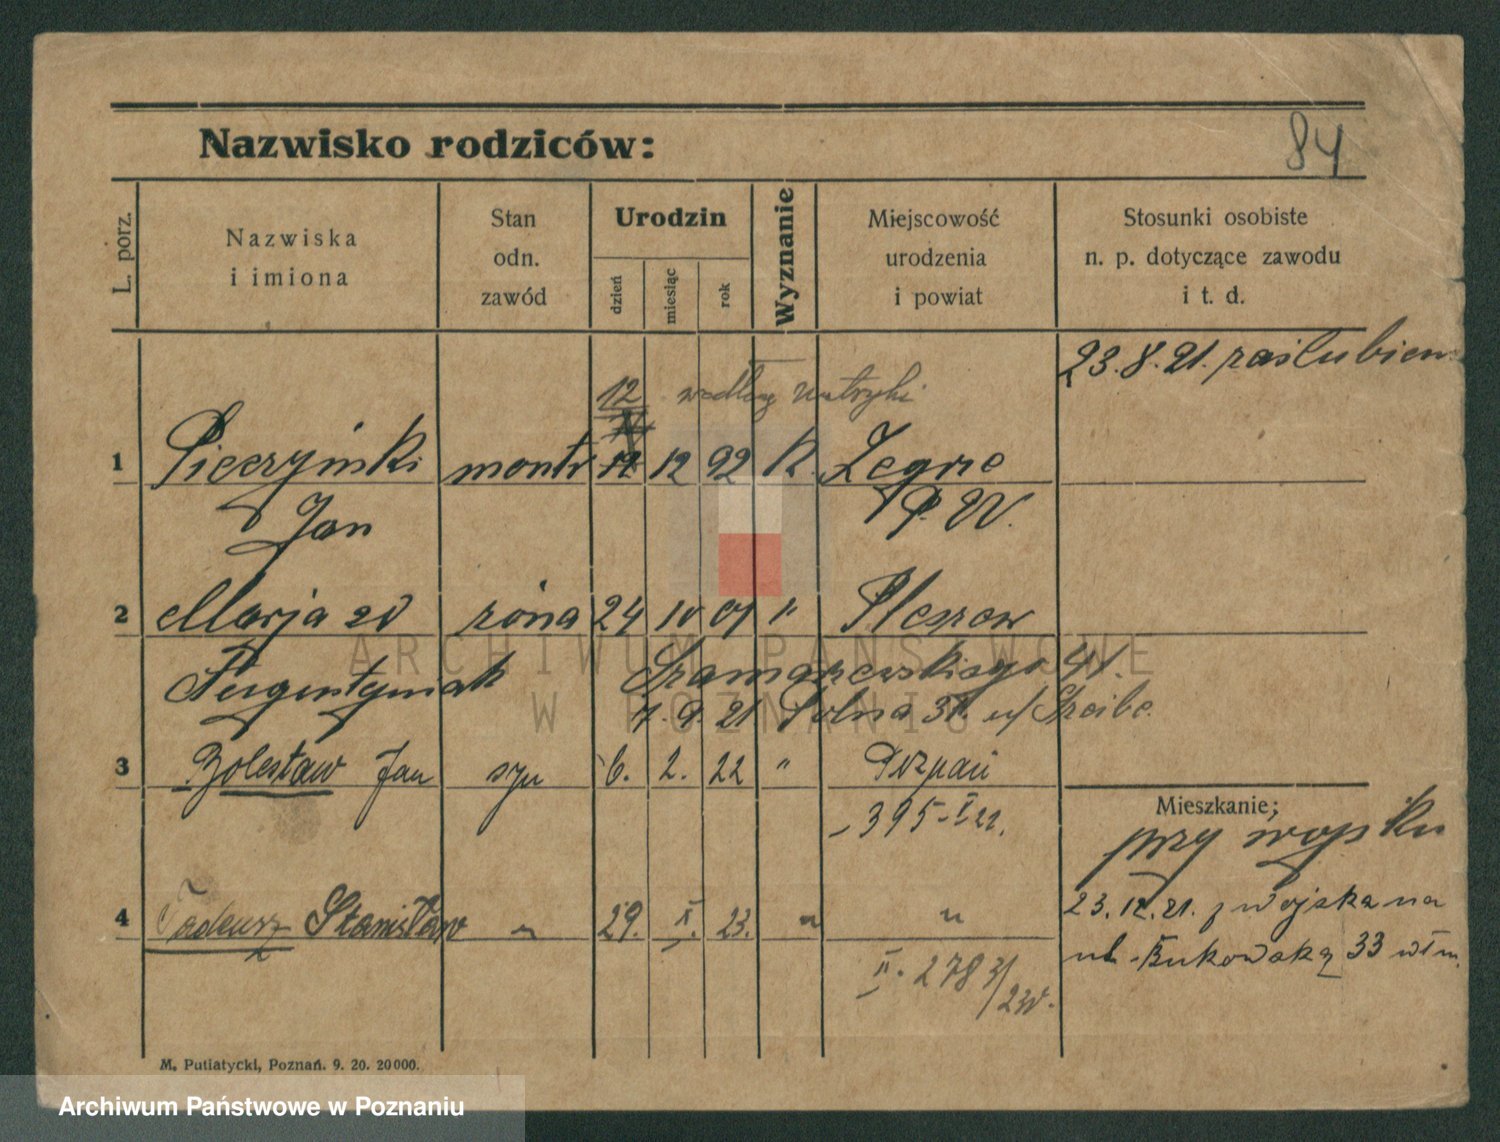 84
Nazwisko rodziców:
L. porz.
Nazwiska
i imiona
Stan
odn.
zawód
Urodzin
dzień
miesiąc
rok
Wyznanie
Miejscowość
urodzenia
i powiat
Stosunki osobiste
n. p. dotyczące zawodu
i t. d.
23.8.21. zaślubien
12 według metryki
1 Pieczyński monter 11 12 92 K Zegrze
Jan P. W.
2 Marja zd żona 24 10 01 " Pleszew
Szamarzewskiego
1.9.21 Solna
3 Bolesław Jan syn 6. 2. 22 " Poznań
395-I 22.
Mieszkanie:
przy wojsku
4 Tadeusz Stanisław " 29. X. 23. " "
23.12.21. z wojska na
ul. Bukowską 33 włm.
II. 2783/23
M. Putiatycki, Poznań. 9. 20. 20000.
ARCHIWUM PAŃSTWOWE
W POZNANIU
Archiwum Państwowe w Poznaniu